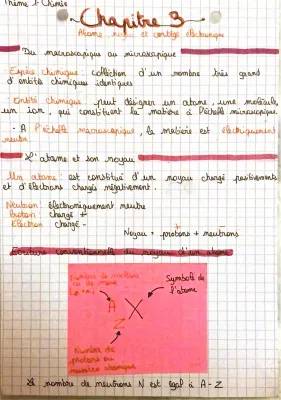 Thème 1: Chimie
Chapitre 3
Atome noyau et cortège électronique
Du macroscopique au microscopique
Espèce chimique collection d'un nombre très grand
d'entités chimiques identiques
Entité chimique peut désigner un atome, une molécule,
un ion, qui constituent la matière à l'échelle microscopique.
- A l'échelle macroscopique, la matière est électriquement
neutre.
L'atome et son noyau
Un atome est constitué d'un noyau chargé positivement
et d'électrons chargés négativement.
Neutron électroniquement neutre
Proton chargé +
Electron chargé -
Noyau = protons + neutrons
Ecriture conventionnelle du noyau d'un atome
Nombre de
Symbole de
l'atome
A X
Z
Nombre de
protons ou
numéro atomique
nombre de neutrons N est égal à A - Z